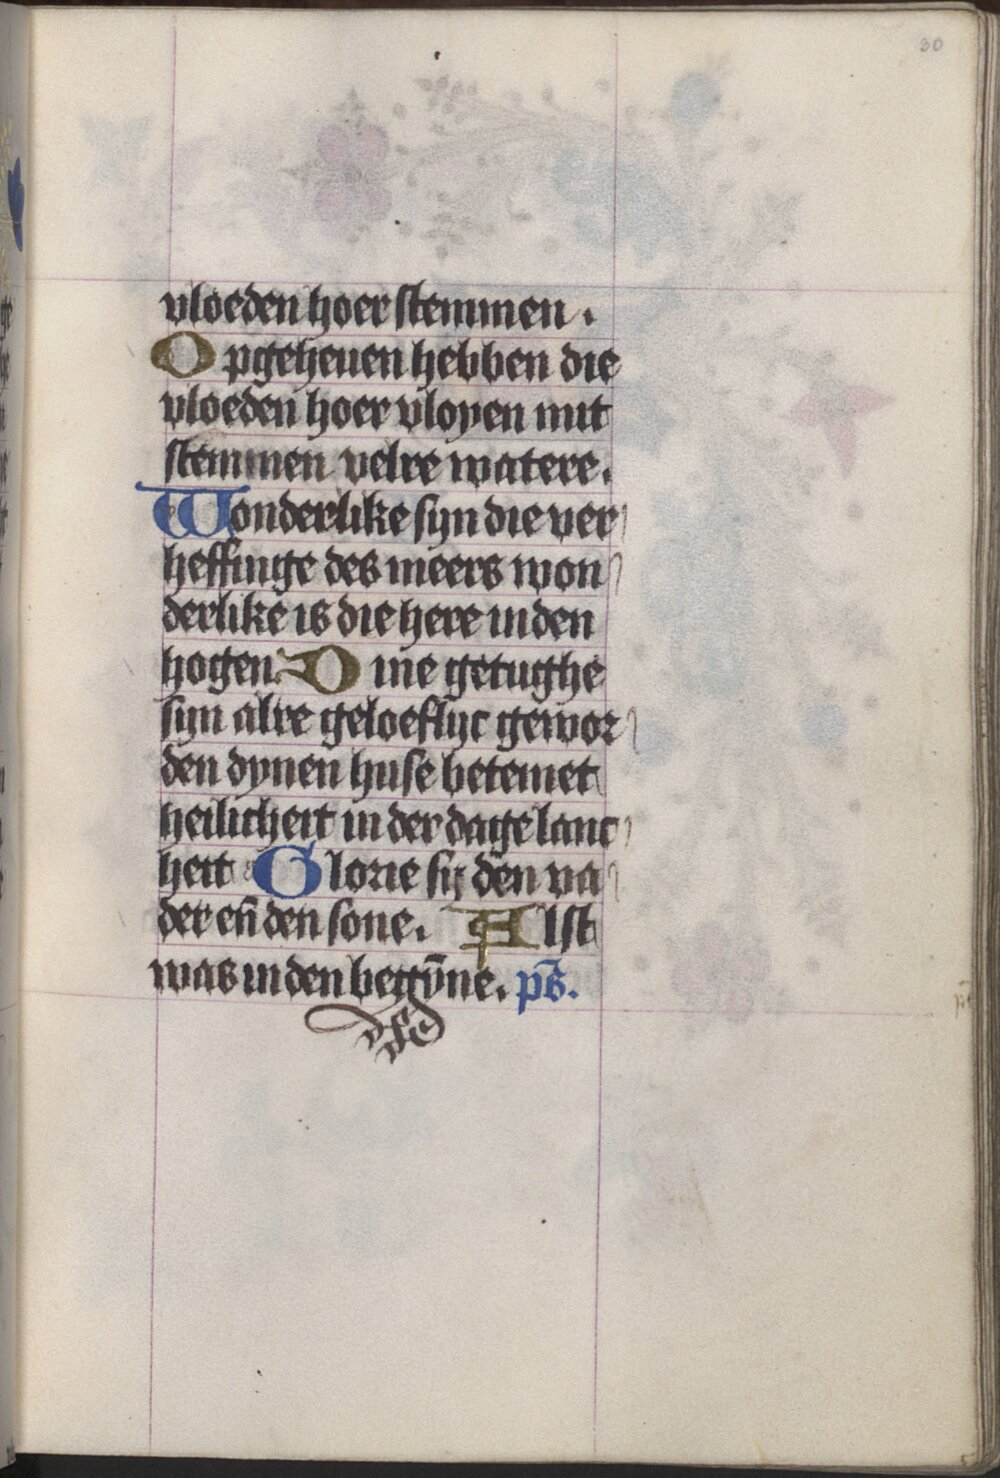 30
vloeden hoer stemmen.
Opgeheuen hebben die
vloeden hoer vloyen mit
stemmen velre watere.
Wonderlike sijn die ver
heffinge des meers won
derlike is die here in den
hogen. Dine getughe
sijn alre geloeflijc gewor
den dynen huse betemet
heilicheit in der dage lanc
heit Glorie sij den va
der en̄ den sone. Alst
was in den begȳne. ps̄.